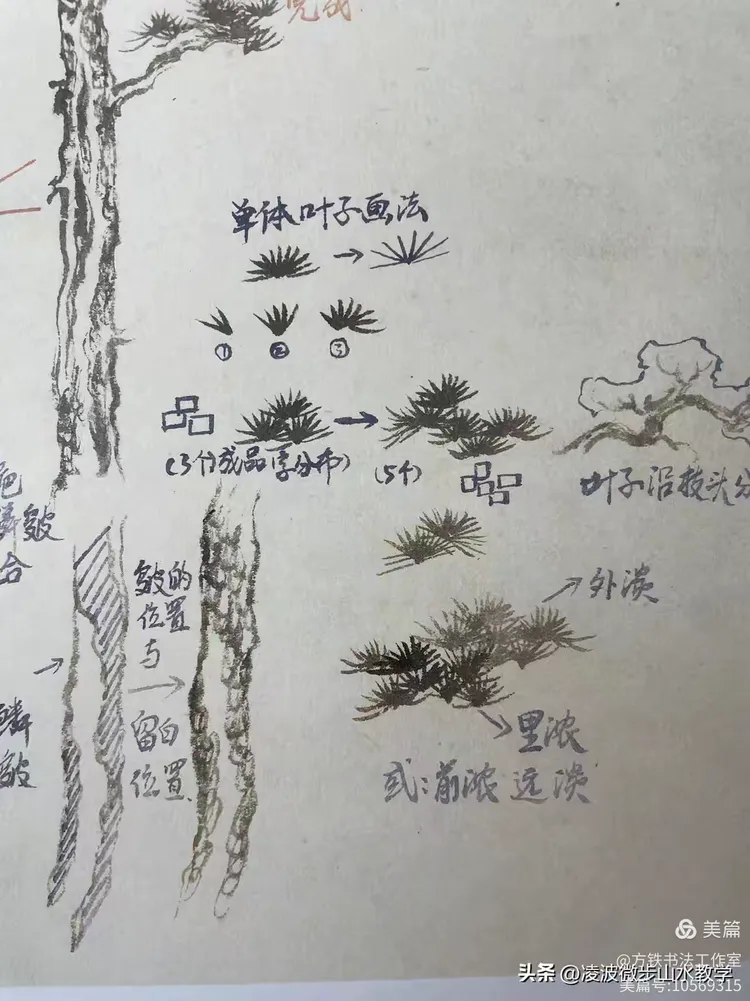 完成.
单体叶子画法
① ② ③
(3个成品字分布)
(5个)
叶子沿枝头分
皴
合
皴的
位置
与
留白
位置
鳞
皴
外淡
里浓
或:前浓 远淡
美篇
@方铁书法工作室
头条 @凌波微步山水教学
美篇号:10569315